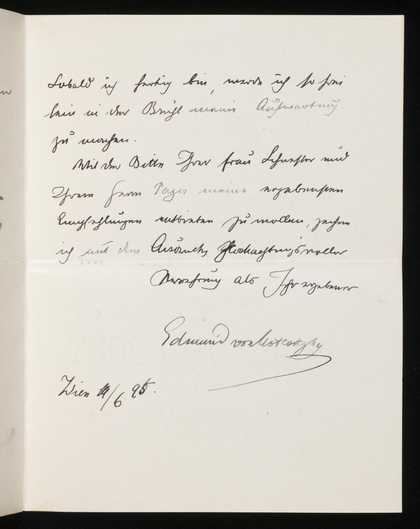 Sobald ich fertig bin, werde ich so frei
sein in der Brühl meine Aufwartung
zu machen.
Mit der Bitte Ihrer Frau Schwester und
Ihrem Herrn Papa meine ergebensten
Empfehlungen entbieten zu wollen, zeichne
ich mit dem Ausdruck hochachtungsvoller
Verehrung als Ihr ergebener
Edmund von
Wien 11/6 95.